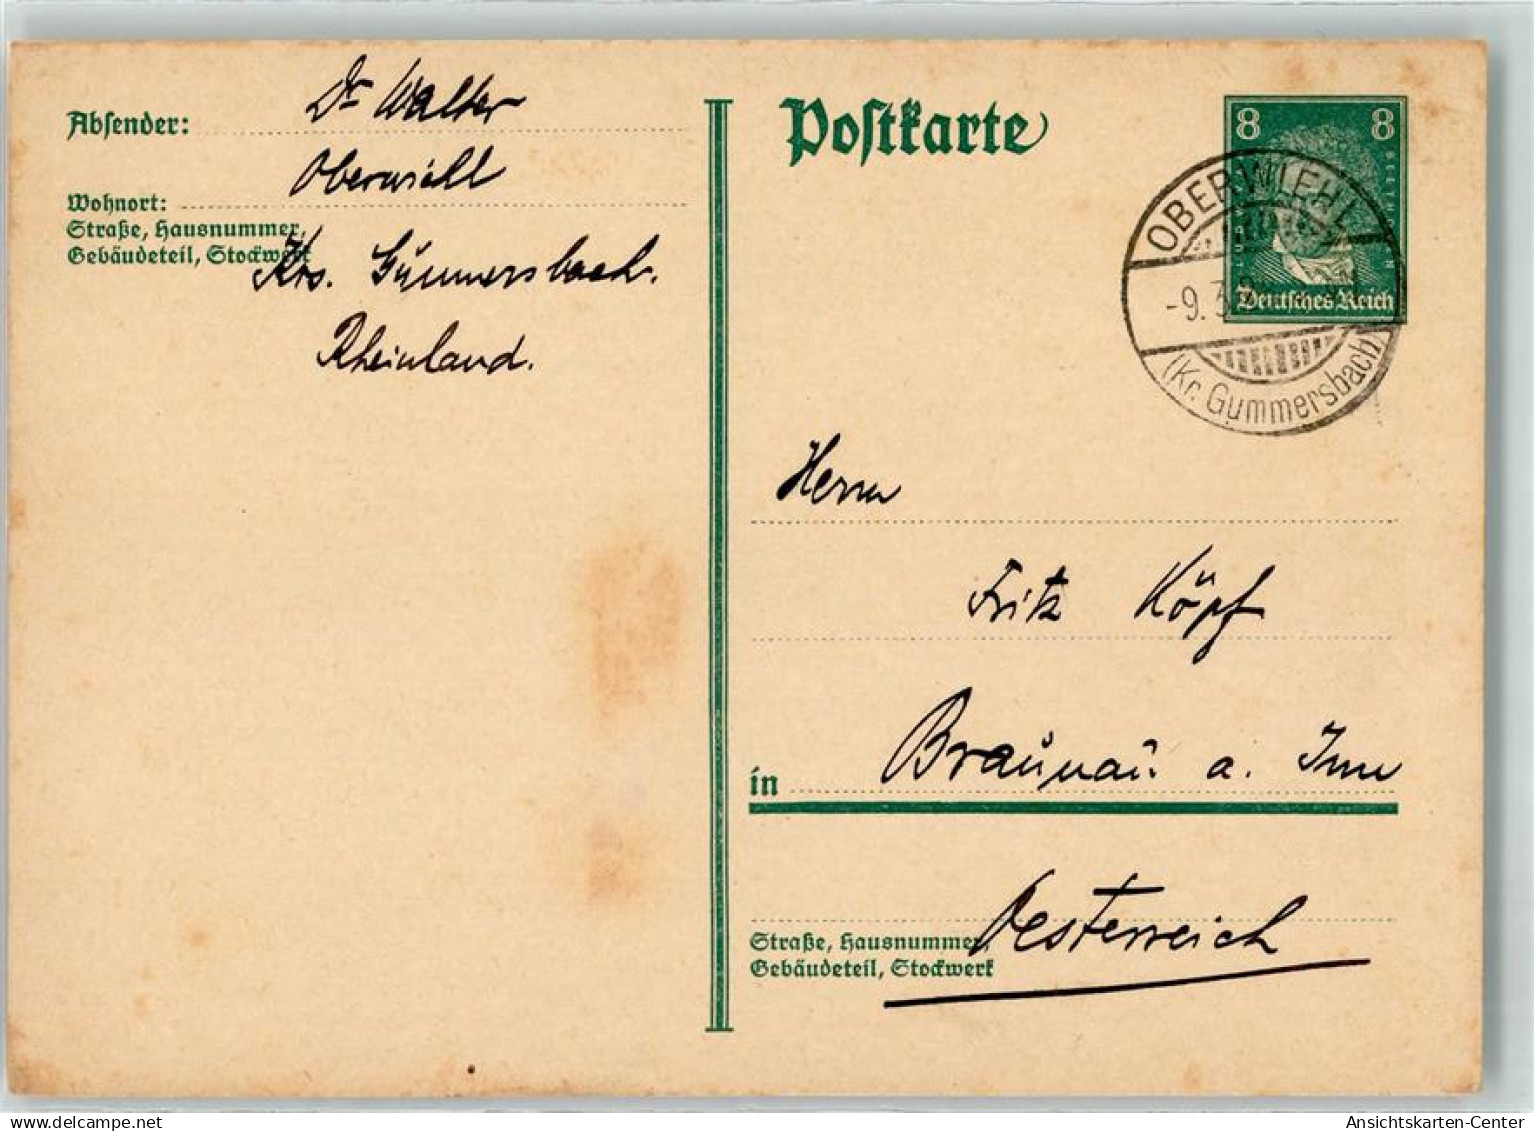 Absender:
Dr Walter
Oberwiehl
Wohnort:
Straße, Hausnummer,
Gebäudeteil, Stockwerk
Krs. Gummersbach.
Rheinland.
Postkarte
8 8
Deutsches Reich
OBERWIEHL
-9.3
(Kr. Gummersbach)
Herrn
Fritz Köpf
in Braunau a. Inn
Oesterreich
Straße, Hausnummer,
Gebäudeteil, Stockwerk
Ansichtskarten-Center